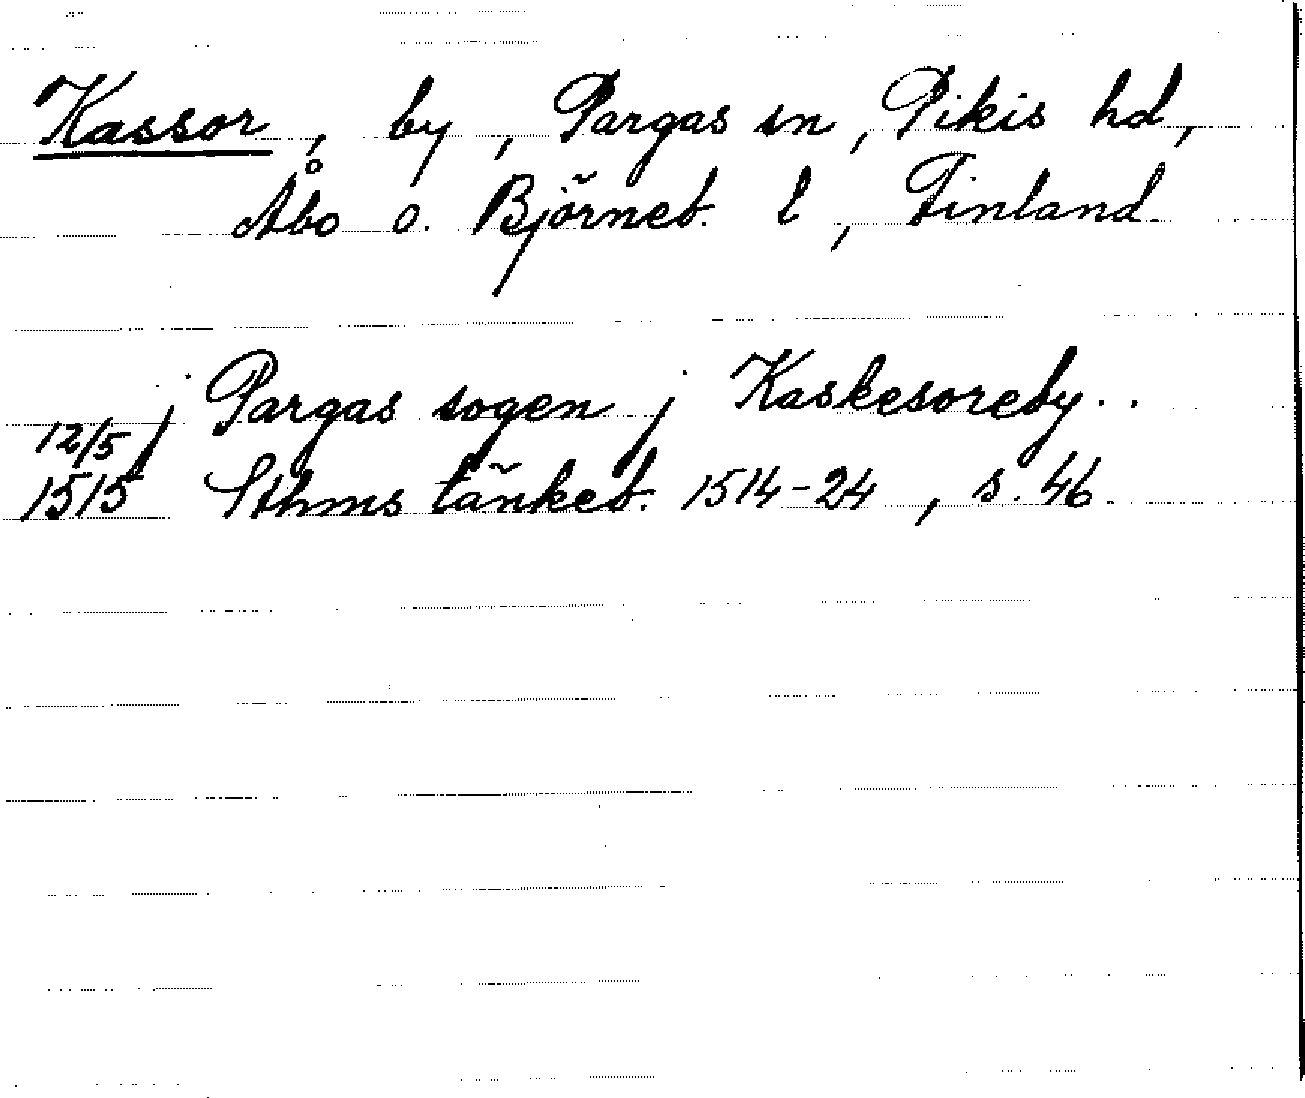 Kassor, by, Pargas sn, Pikis hd,
Åbo o. Björneb. l, Finland
j Pargas sogen j Kaskesoreby..
12/5
1515 Sthms tänkeb. 1514-24, s. 46.